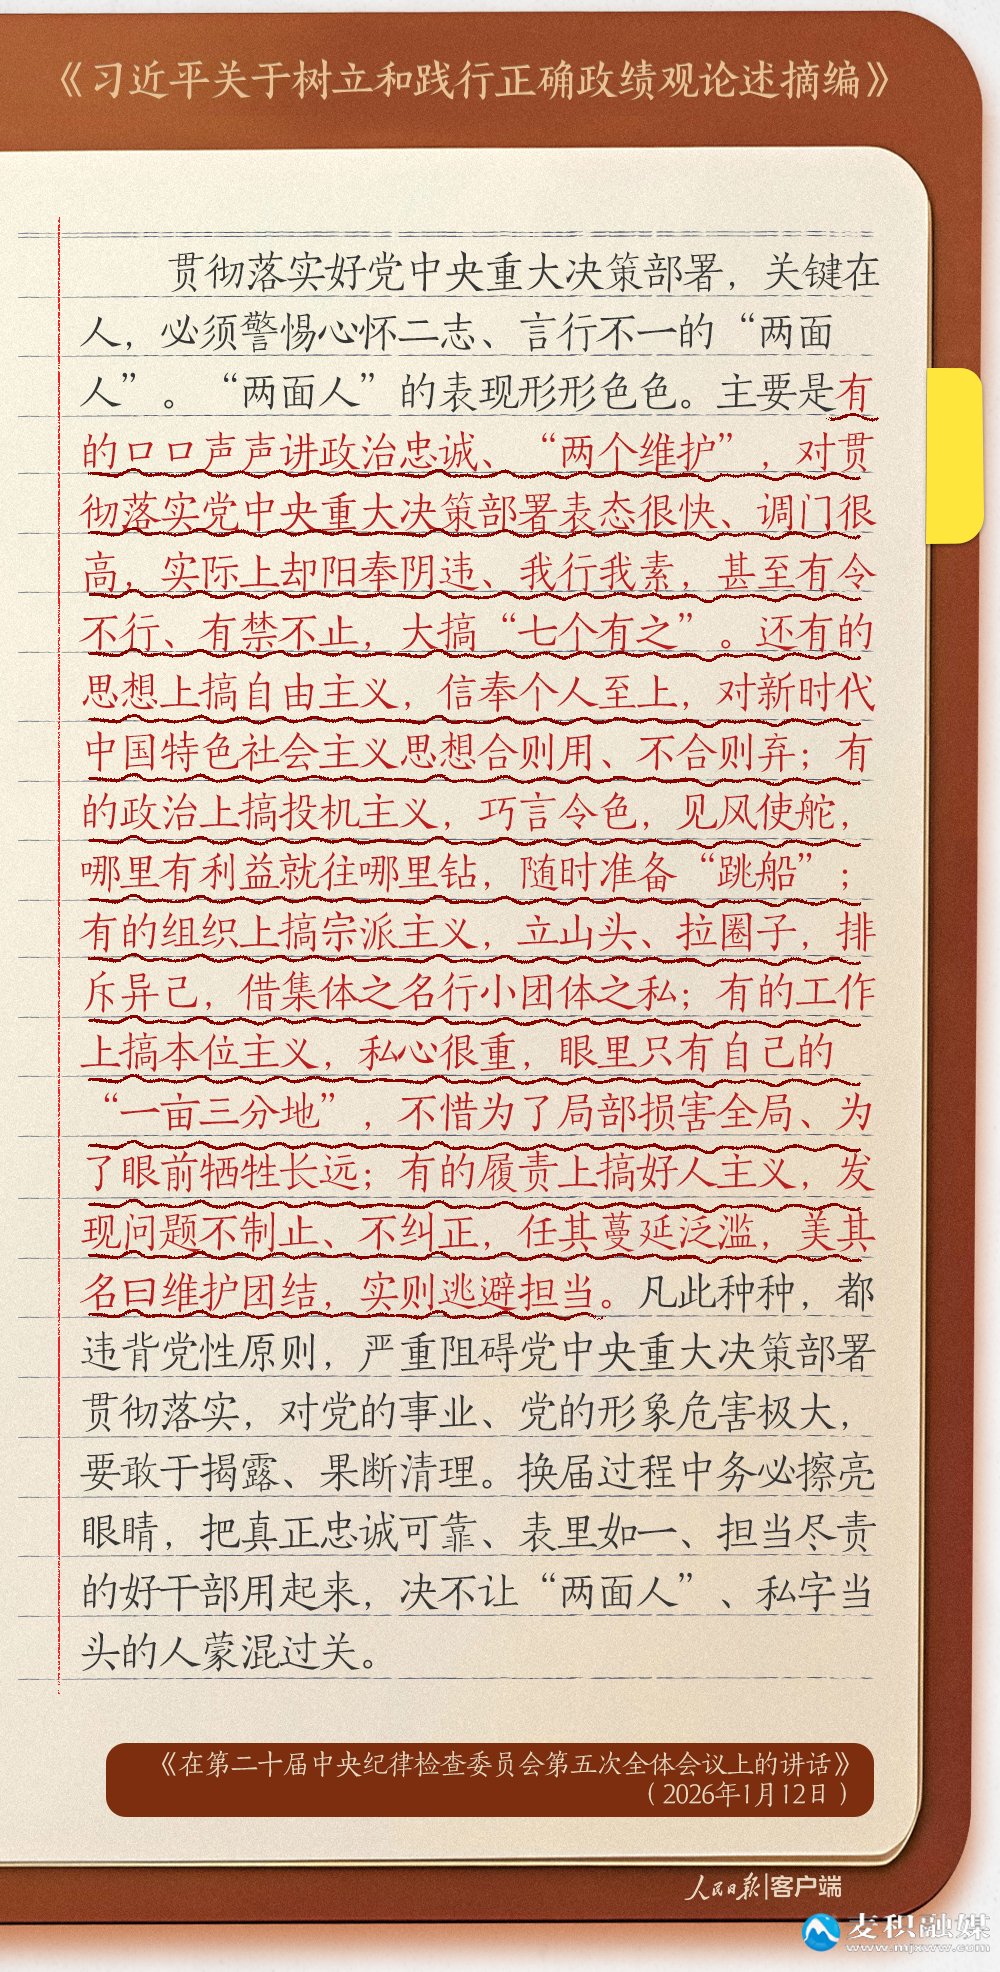 《习近平关于树立和践行正确政绩观论述摘编》
贯彻落实好党中央重大决策部署，关键在
人，必须警惕心怀二志、言行不一的“两面
人”。“两面人”的表现形形色色。主要是有
的口口声声讲政治忠诚、“两个维护”，对贯
彻落实党中央重大决策部署表态很快、调门很
高，实际上却阳奉阴违、我行我素，甚至有令
不行、有禁不止，大搞“七个有之”。还有的
思想上搞自由主义，信奉个人至上，对新时代
中国特色社会主义思想合则用、不合则弃；有
的政治上搞投机主义，巧言令色，见风使舵，
哪里有利益就往哪里钻，随时准备“跳船”；
有的组织上搞宗派主义，立山头、拉圈子，排
斥异己，借集体之名行小团体之私；有的工作
上搞本位主义，私心很重，眼里只有自己的
“一亩三分地”，不惜为了局部损害全局、为
了眼前牺牲长远；有的履责上搞好人主义，发
现问题不制止、不纠正，任其蔓延泛滥，美其
名曰维护团结，实则逃避担当。凡此种种，都
违背党性原则，严重阻碍党中央重大决策部署
贯彻落实，对党的事业、党的形象危害极大，
要敢于揭露、果断清理。换届过程中务必擦亮
眼睛，把真正忠诚可靠、表里如一、担当尽责
的好干部用起来，决不让“两面人”、私字当
头的人蒙混过关。
《在第二十届中央纪律检查委员会第五次全体会议上的讲话》
（2026年1月12日）
人民日报|客户端
麦积融媒
www.mjxww.com